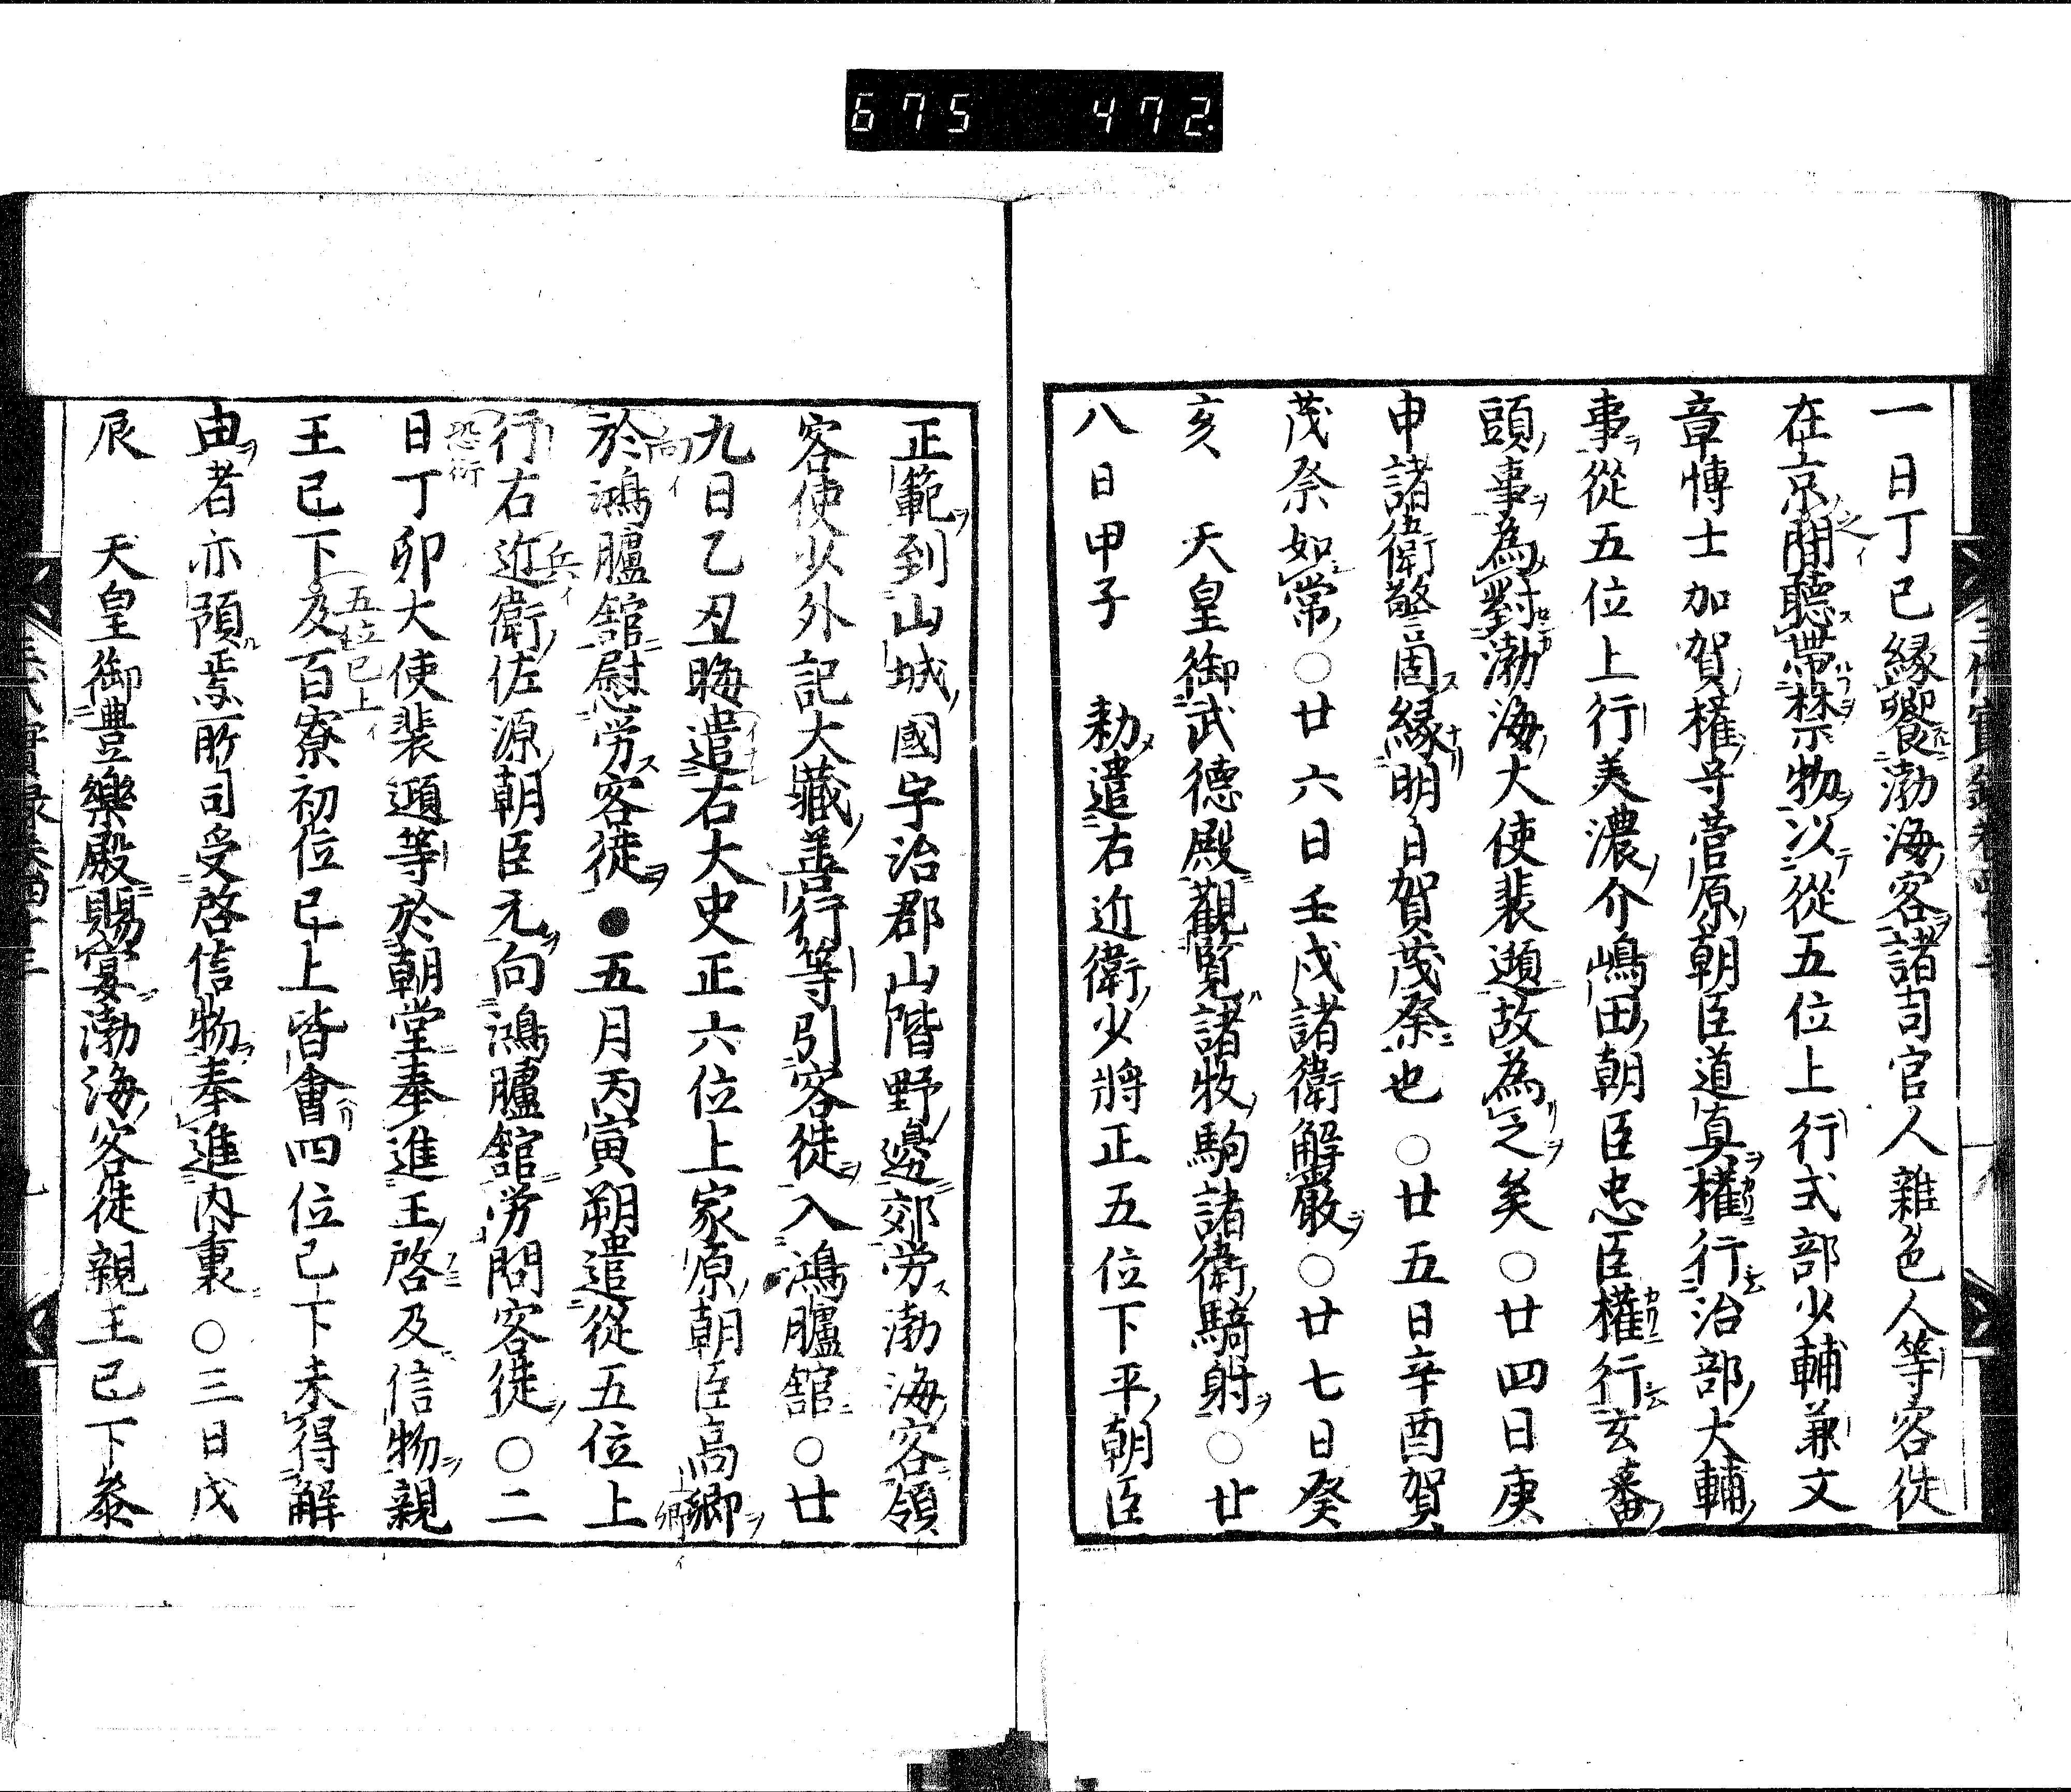 675 472.
一日丁巳緣饗渤海客諸司官人雜色人等客徒
在京間聽帶禁物以從五位上行式部少輔兼文
章博士加賀權守菅原朝臣道真權行治部大輔
事從五位上行美濃介嶋田朝臣忠臣權行玄蕃
頭事為對渤海大使裴頲故為之矣○廿四日庚
申諸衛警固緣明日賀茂祭也○廿五日辛酉賀
茂祭如常○廿六日壬戌諸衛解嚴○廿七日癸
亥 天皇御武德殿觀覽諸牧駒諸衛騎射○廿
八日甲子 勑遣右近衛少將正五位下平朝臣
正範到山城國宇治郡山階野邊郊労渤海客領
客使少外記大藏善行等引客徒入鴻臚舘○廿
九日乙丑晦遣右大史正六位上家原朝臣高卿
於鴻臚舘慰労客徒●五月丙寅朔遣從五位上
行右近衛佐源朝臣元向鴻臚舘労問客徒○二
日丁卯大使裴頲等於朝堂奉進王啓及信物親
王已下及百寮初位已上皆會四位已下未得解
由者亦預焉所司受啓信物奉進內裏○三日戊
辰 天皇御豊樂殿賜宴渤海客徒親王已下叅